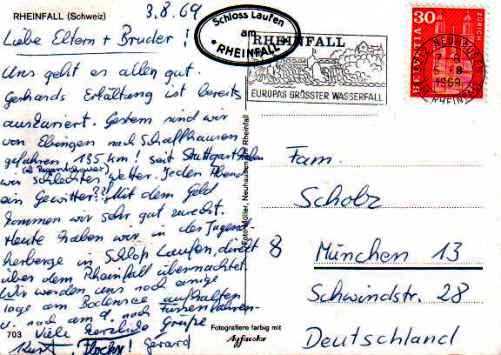 RHEINFALL (Schweiz)
3.8.69
Liebe Eltern + Bruder!
Uns geht es allen gut.
Gerhards Erkältung ist bereits
auskuriert. Gestern sind wir
von Ebingen nach Schaffhausen
gefahren 155 km! seit Stuttgart haben
wir schlechtes Wetter. Jeden Abend
ein Gewitter?! Mit dem Geld
kommen wir sehr gut zurecht.
Heute haben wir in der Jugend-
herberge in Schloß Laufen, direkt
über dem Rheinfall übernachtet.
Wir werden uns noch einige
Tage am Bodensee aufhalten
u. nach Füssen fahren
Viele herzliche Grüße
Kurt, Gerard
703
Schloss Laufen
am
RHEINFALL
RHEINFALL
EUROPAS GRÖSSTER WASSERFALL
30
HELVETIA
ZÜRICH
NEUHAUSEN
1969
RHEINFALL
Foto Müller, Neuhausen am Rheinfall
Fam.
Scholz
8 München 13
Schwindstr. 28
Deutschland
Fotografiere farbig mit
Agfacolor